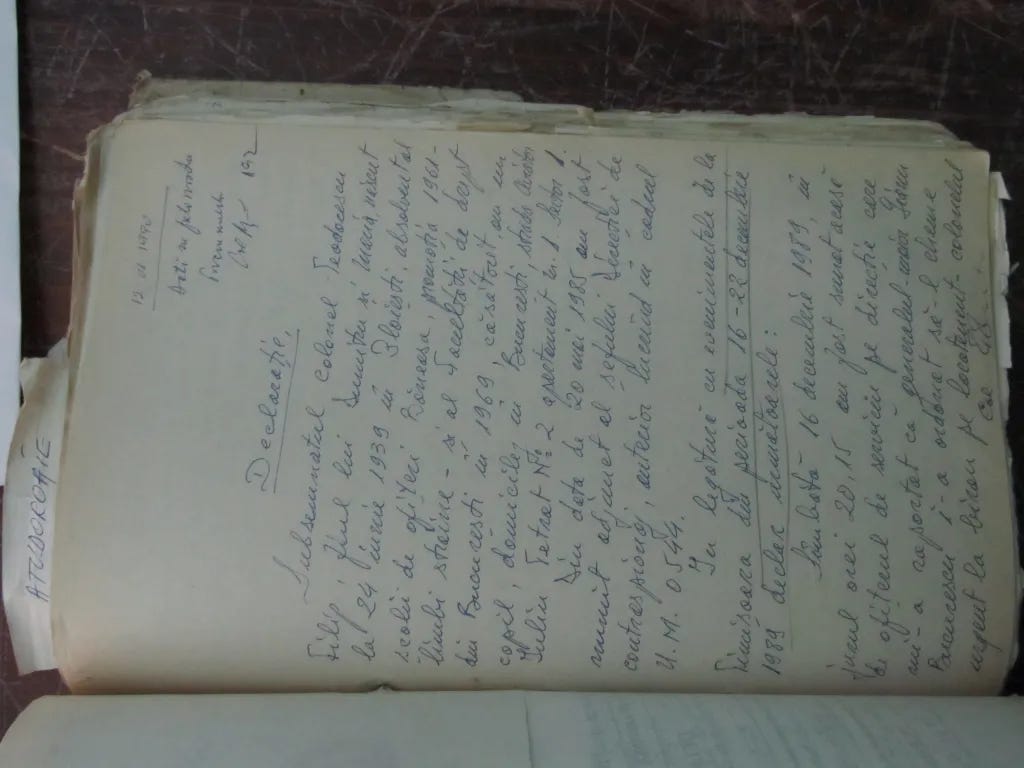 ATUDOROAIE
192
Declarație,
Subsemnatul colonel Teodorescu
Filip fiul lui Dumitru și Maria, născut
la 24 iunie 1939 în Ploiești, absolvental
școlii de ofițeri Băneasa, promoția 1961-
limbi străine - și al Facultății de drept
din București în 1969, căsătorit am un
copil, domiciliez în București strada
Iuliu Tetrat Nr. 2 apartament nr. 1.
Din data de 20 mai 1985 am fost
numit adjunct al șefului Direcției de
contraspionaj, anterior lucrînd în cadrul
U.M. 0544.
În legătură cu evenimentele de la
Timișoara din perioada 16-22 decembrie
1989 declar următoarele:
Sîmbătă 16 decembrie 1989, în
jurul orei 20,15 am fost sunat acasă
de ofițerul de serviciu pe direcție care
mi-a raportat că generalul-maior
i-a ordonat să-l cheme
urgent la birou pe locotenent-colonelul